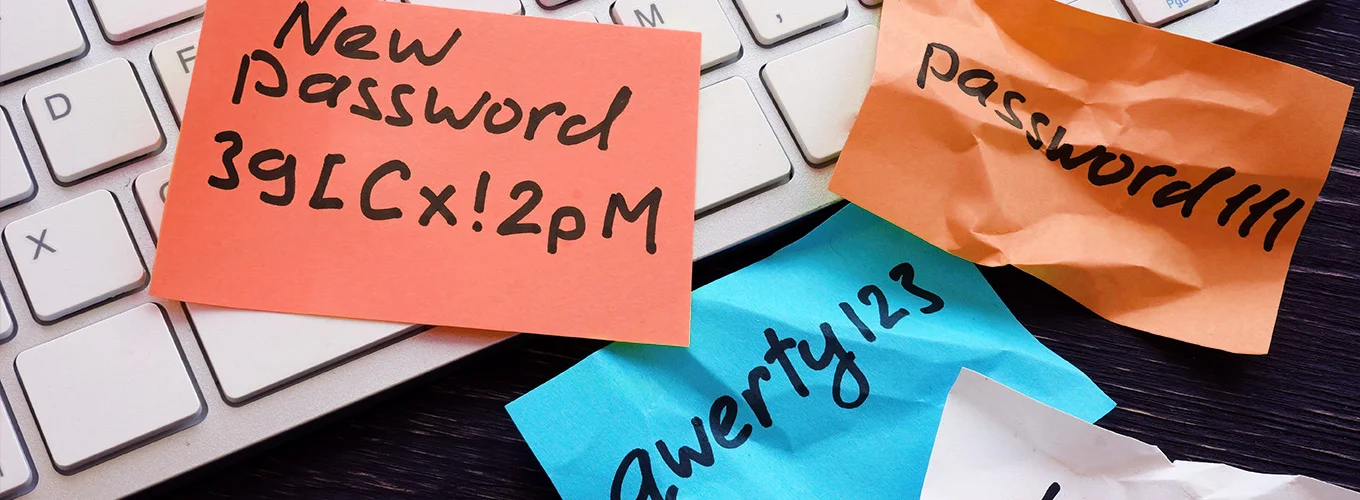 New
password
3g[Cx!2pM
password111
qwerty123
F
M
,
D
X